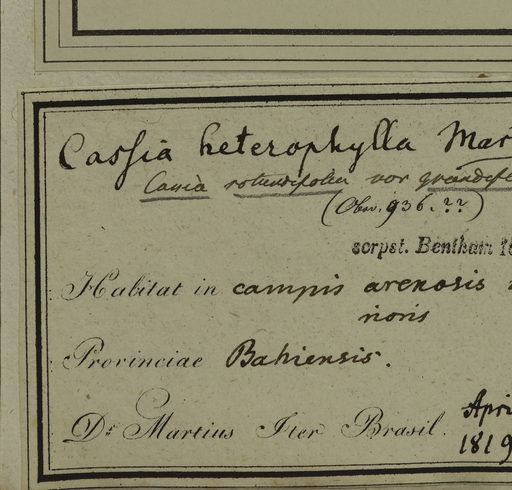 Cassia heterophylla Mar
Cassia rotundifolia var grandifl
(Obs. 936. ??)
scrpst. Bentham 18
Habitat in campis arenosis
rioris
Provinciae Bahiensis.
Dr. Martius Iter Brasil. Apri
1819